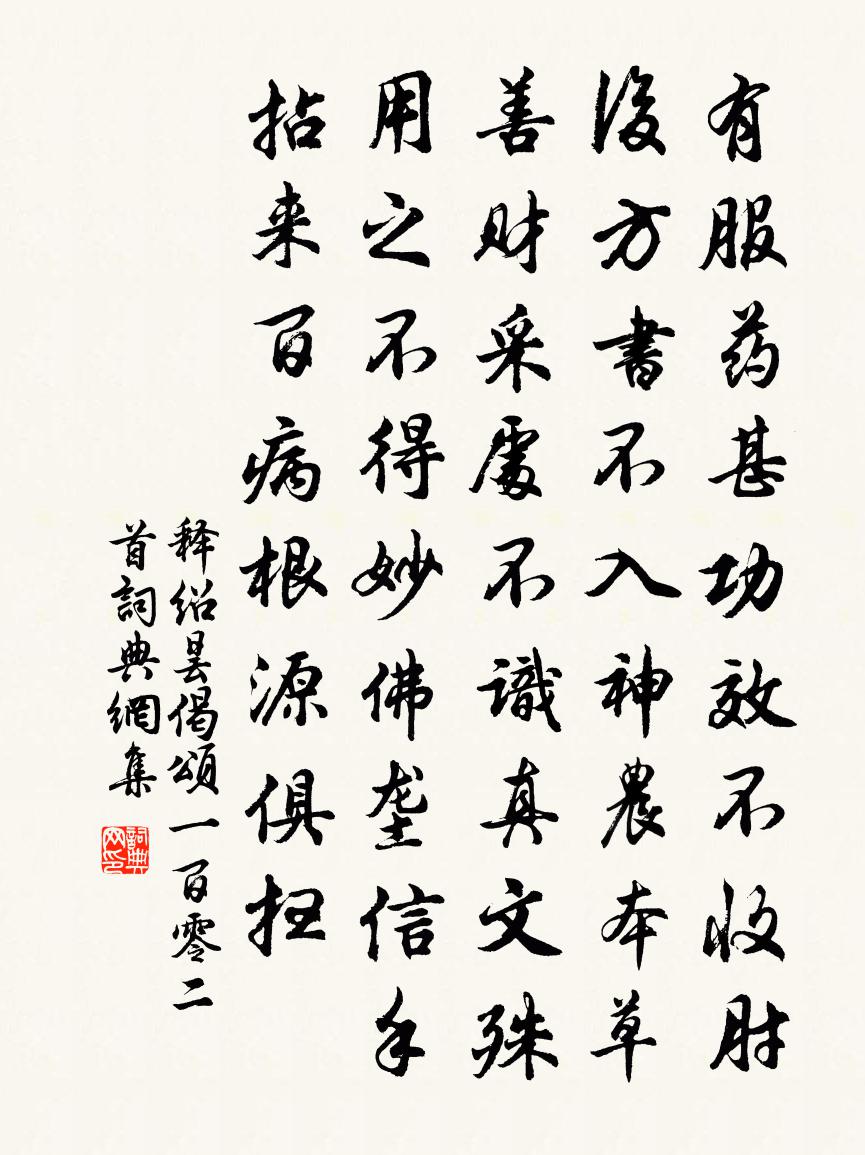 有服药甚功效不收肘
後方書不入神農本草
善财采處不識真文殊
用之不得妙佛垄信手
拈来百病根源俱扫
释绍昙偈頌一百零二
首詞典網集
詞典网印